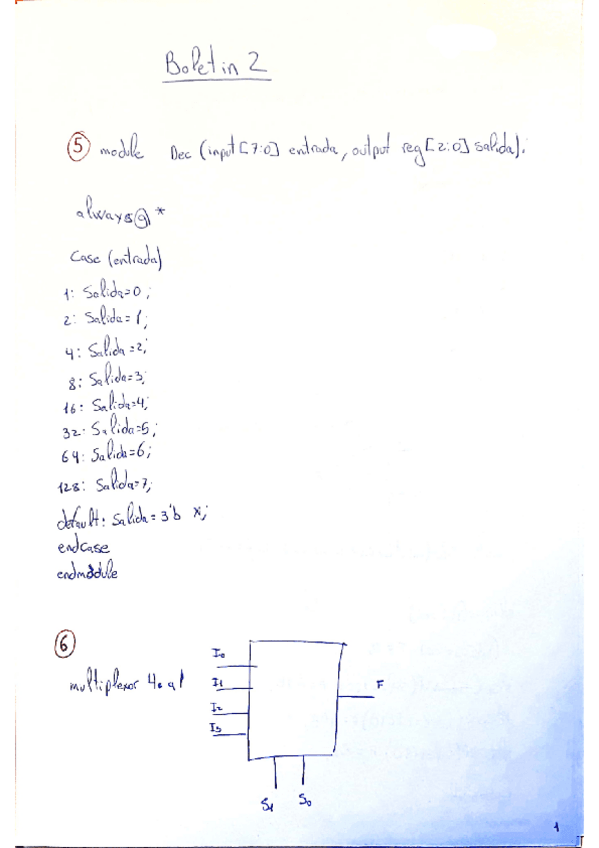 Boletin 2
5 module Dec (input [7:0] entrada, output reg [2:0] salida);
always @ *
Case (entrada)
1: Salida=0;
2: Salida=1;
4: Salida=2;
8: Salida=3;
16: Salida=4;
32: Salida=5;
64: Salida=6;
128: Salida=7;
default: Salida=3'b x;
endcase
endmodule
6
multiplexor 4 a 1
I0
I1
I2
I3
F
S1 S0
1